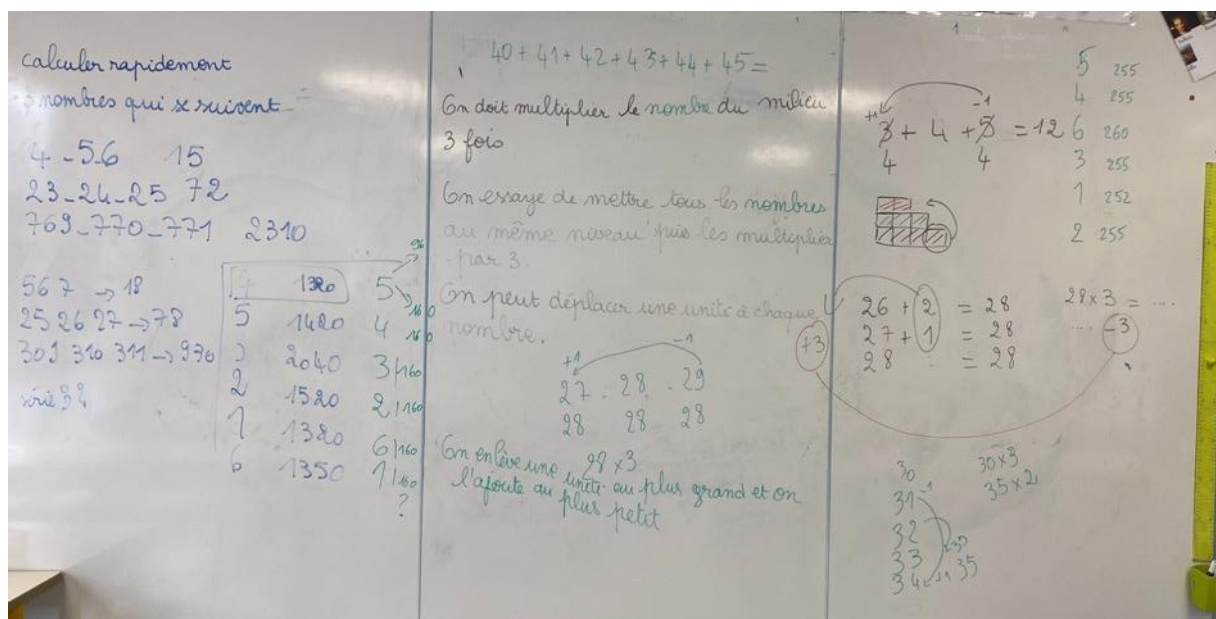 calculer rapidement
3 nombres qui se suivent
4-5-6 15
23-24-25 72
769-770-771 2310
5 6 7 → 18
25 26 27 → 78
309 310 311 → 930
série
1320
5 1420
3 2040
2 1520
1 1380
6 1350
5
4
3 | 160
2 | 160
6 | 160
1 | 160
?
40 + 41 + 42 + 43 + 44 + 45 =
On doit multiplier le nombre du milieu
3 fois
On essaye de mettre tous les nombres
au même niveau puis les multiplier
par 3.
On peut déplacer une unité à chaque
nombre.
+1 -1
27 . 28 . 29
28 28 28
28 x 3
On enlève une unité au plus grand et on
l'ajoute au plus petit
+1 -1
3 + 4 + 5 = 12
4 4
5 255
4 255
6 260
3 255
1 252
2 255
26 + 2 = 28
27 + 1 = 28
28 = 28
+3
28 x 3 = ....
.... -3
30
31 -1
32
33
34 +1 35
30 x 3
35 x 2